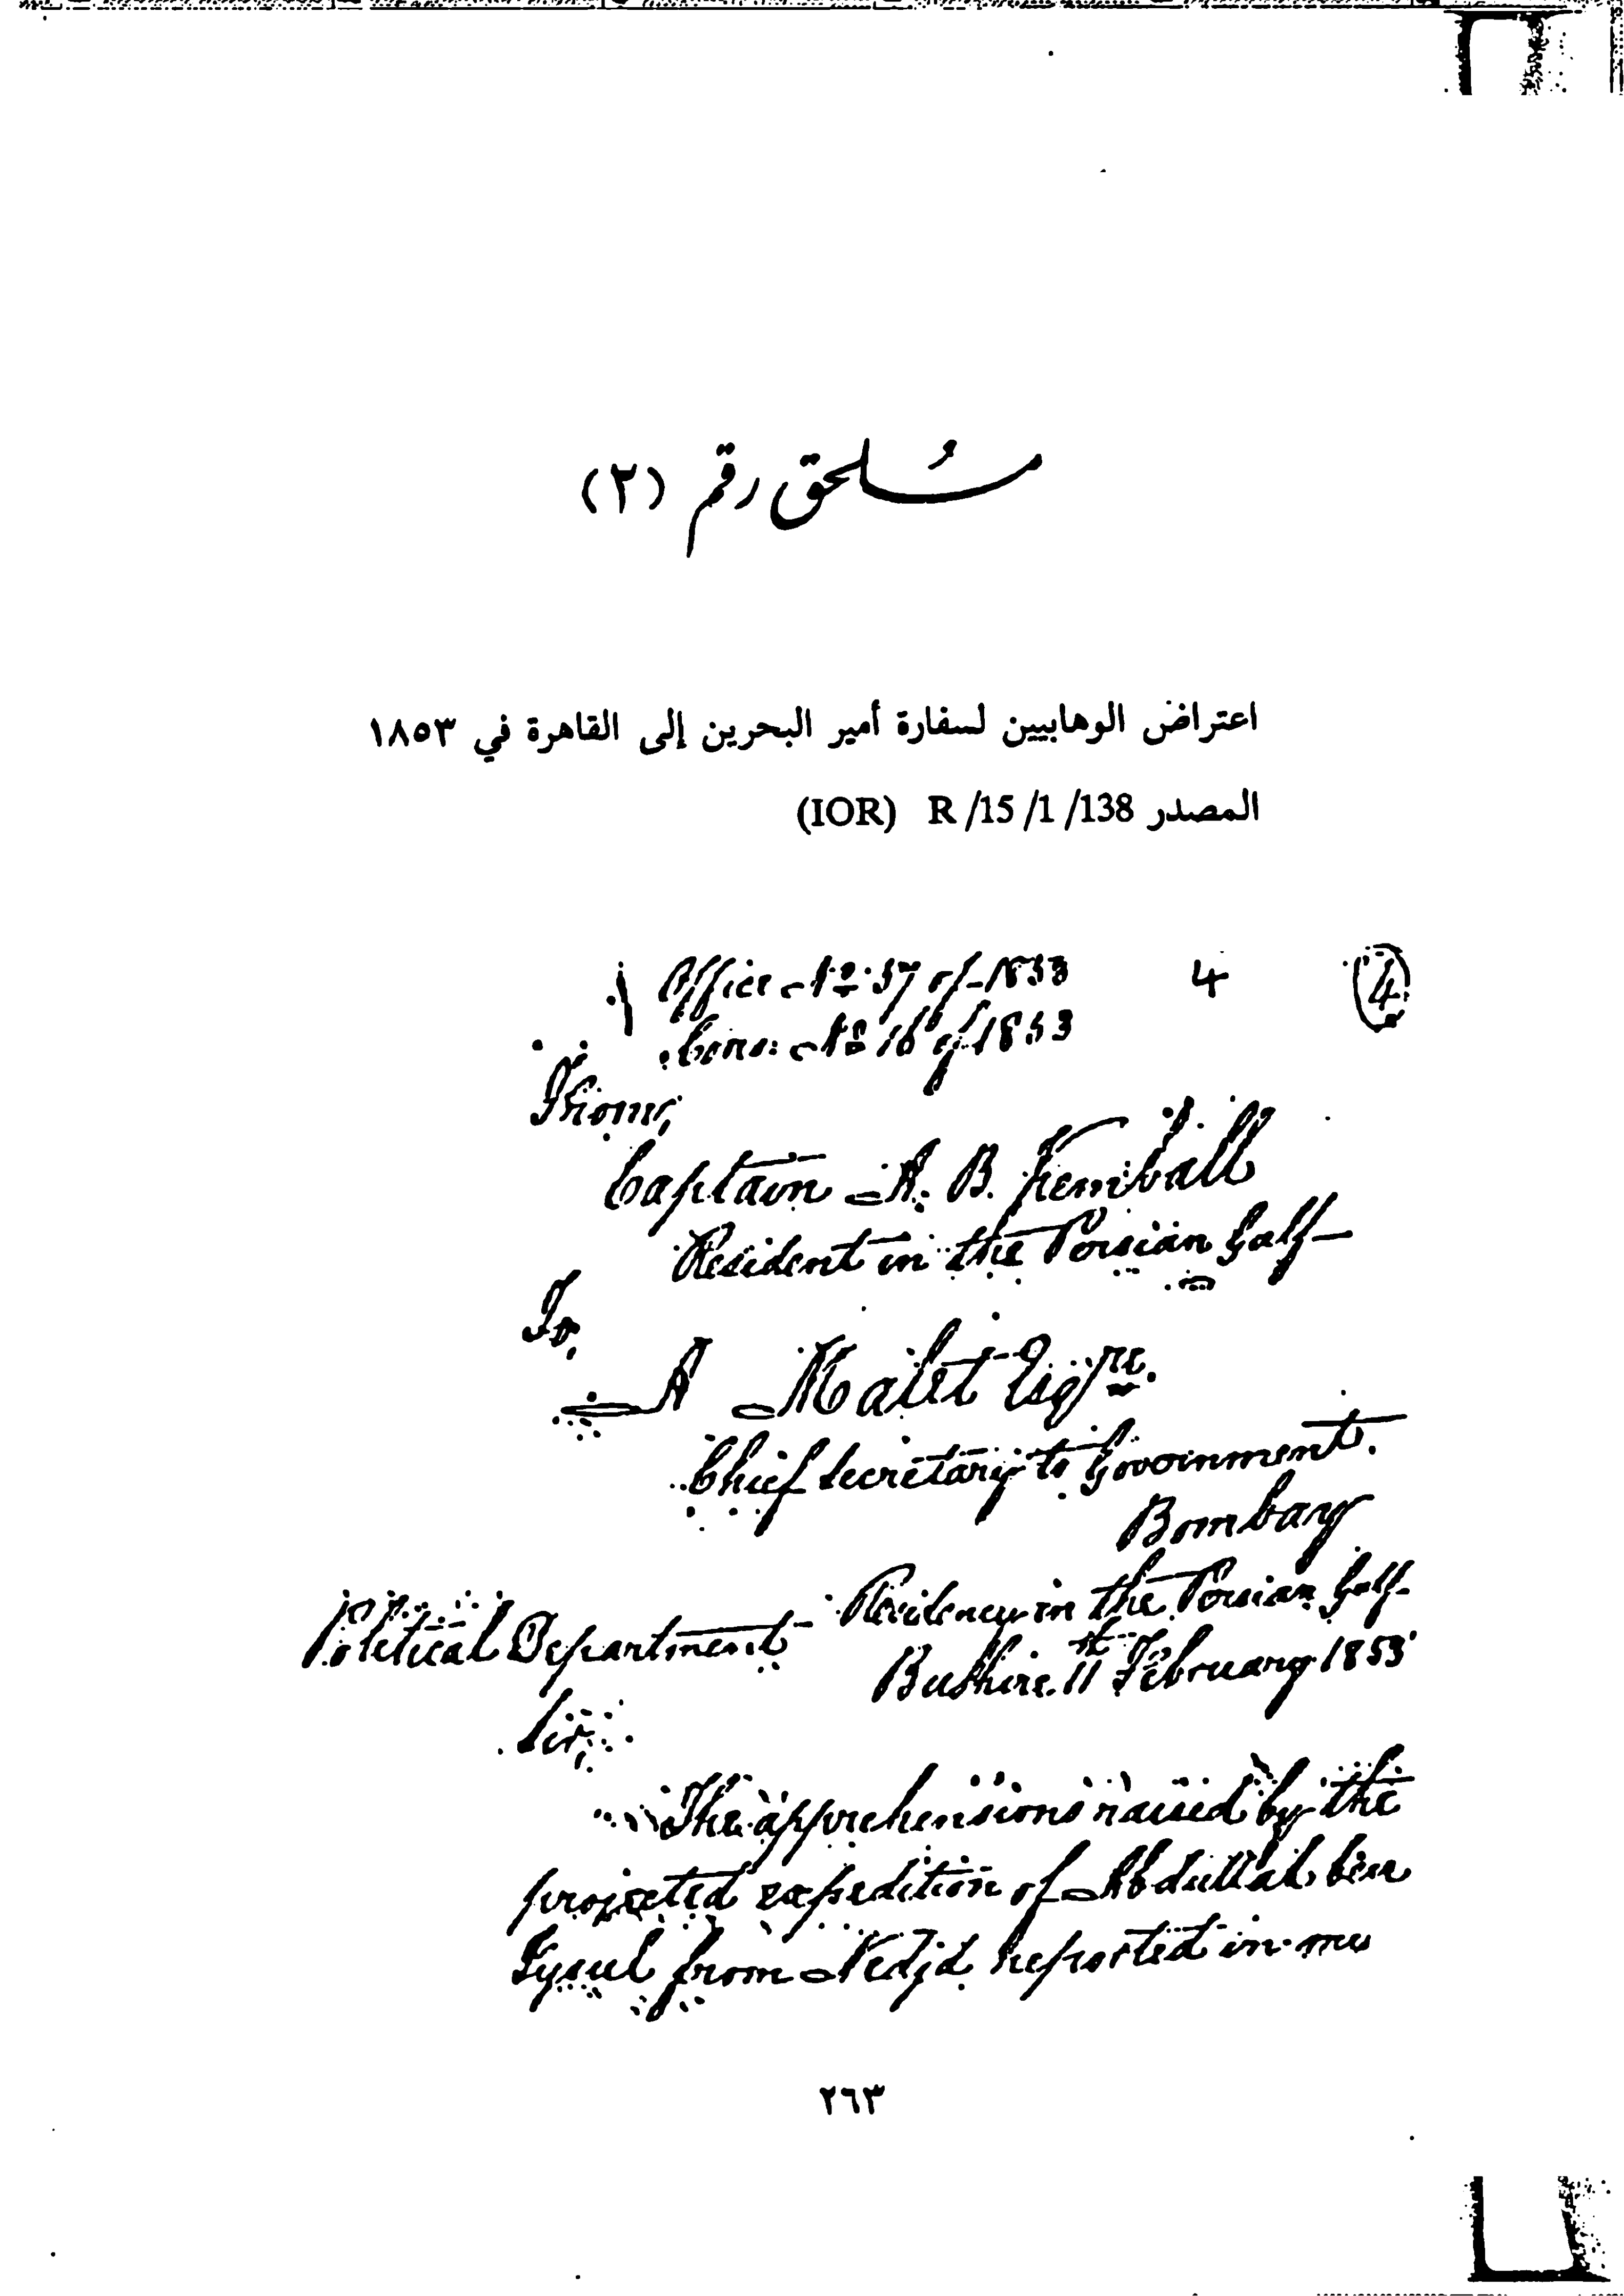 مُلحق رقم (٢)
اعتراض الوهابيين لسفارة أمير البحرين إلى القاهرة في ١٨٥٣
المصدر R /15 /1 /138 (IOR)
Office No 57 of 1853 4 4
No 16 of 1853
From,
Captain A. B. Kemball
Resident in the Persian Gulf
To,
A Malet Esqre.
Chief Secretary to Government.
Bombay
Residency in the Persian Gulf
Political Department
Bushire 11th February 1853
Sir,
The apprehensions raised by the
projected expedition of Abdullah bin
Fysul from Nedjd reported in my
٢٦٣